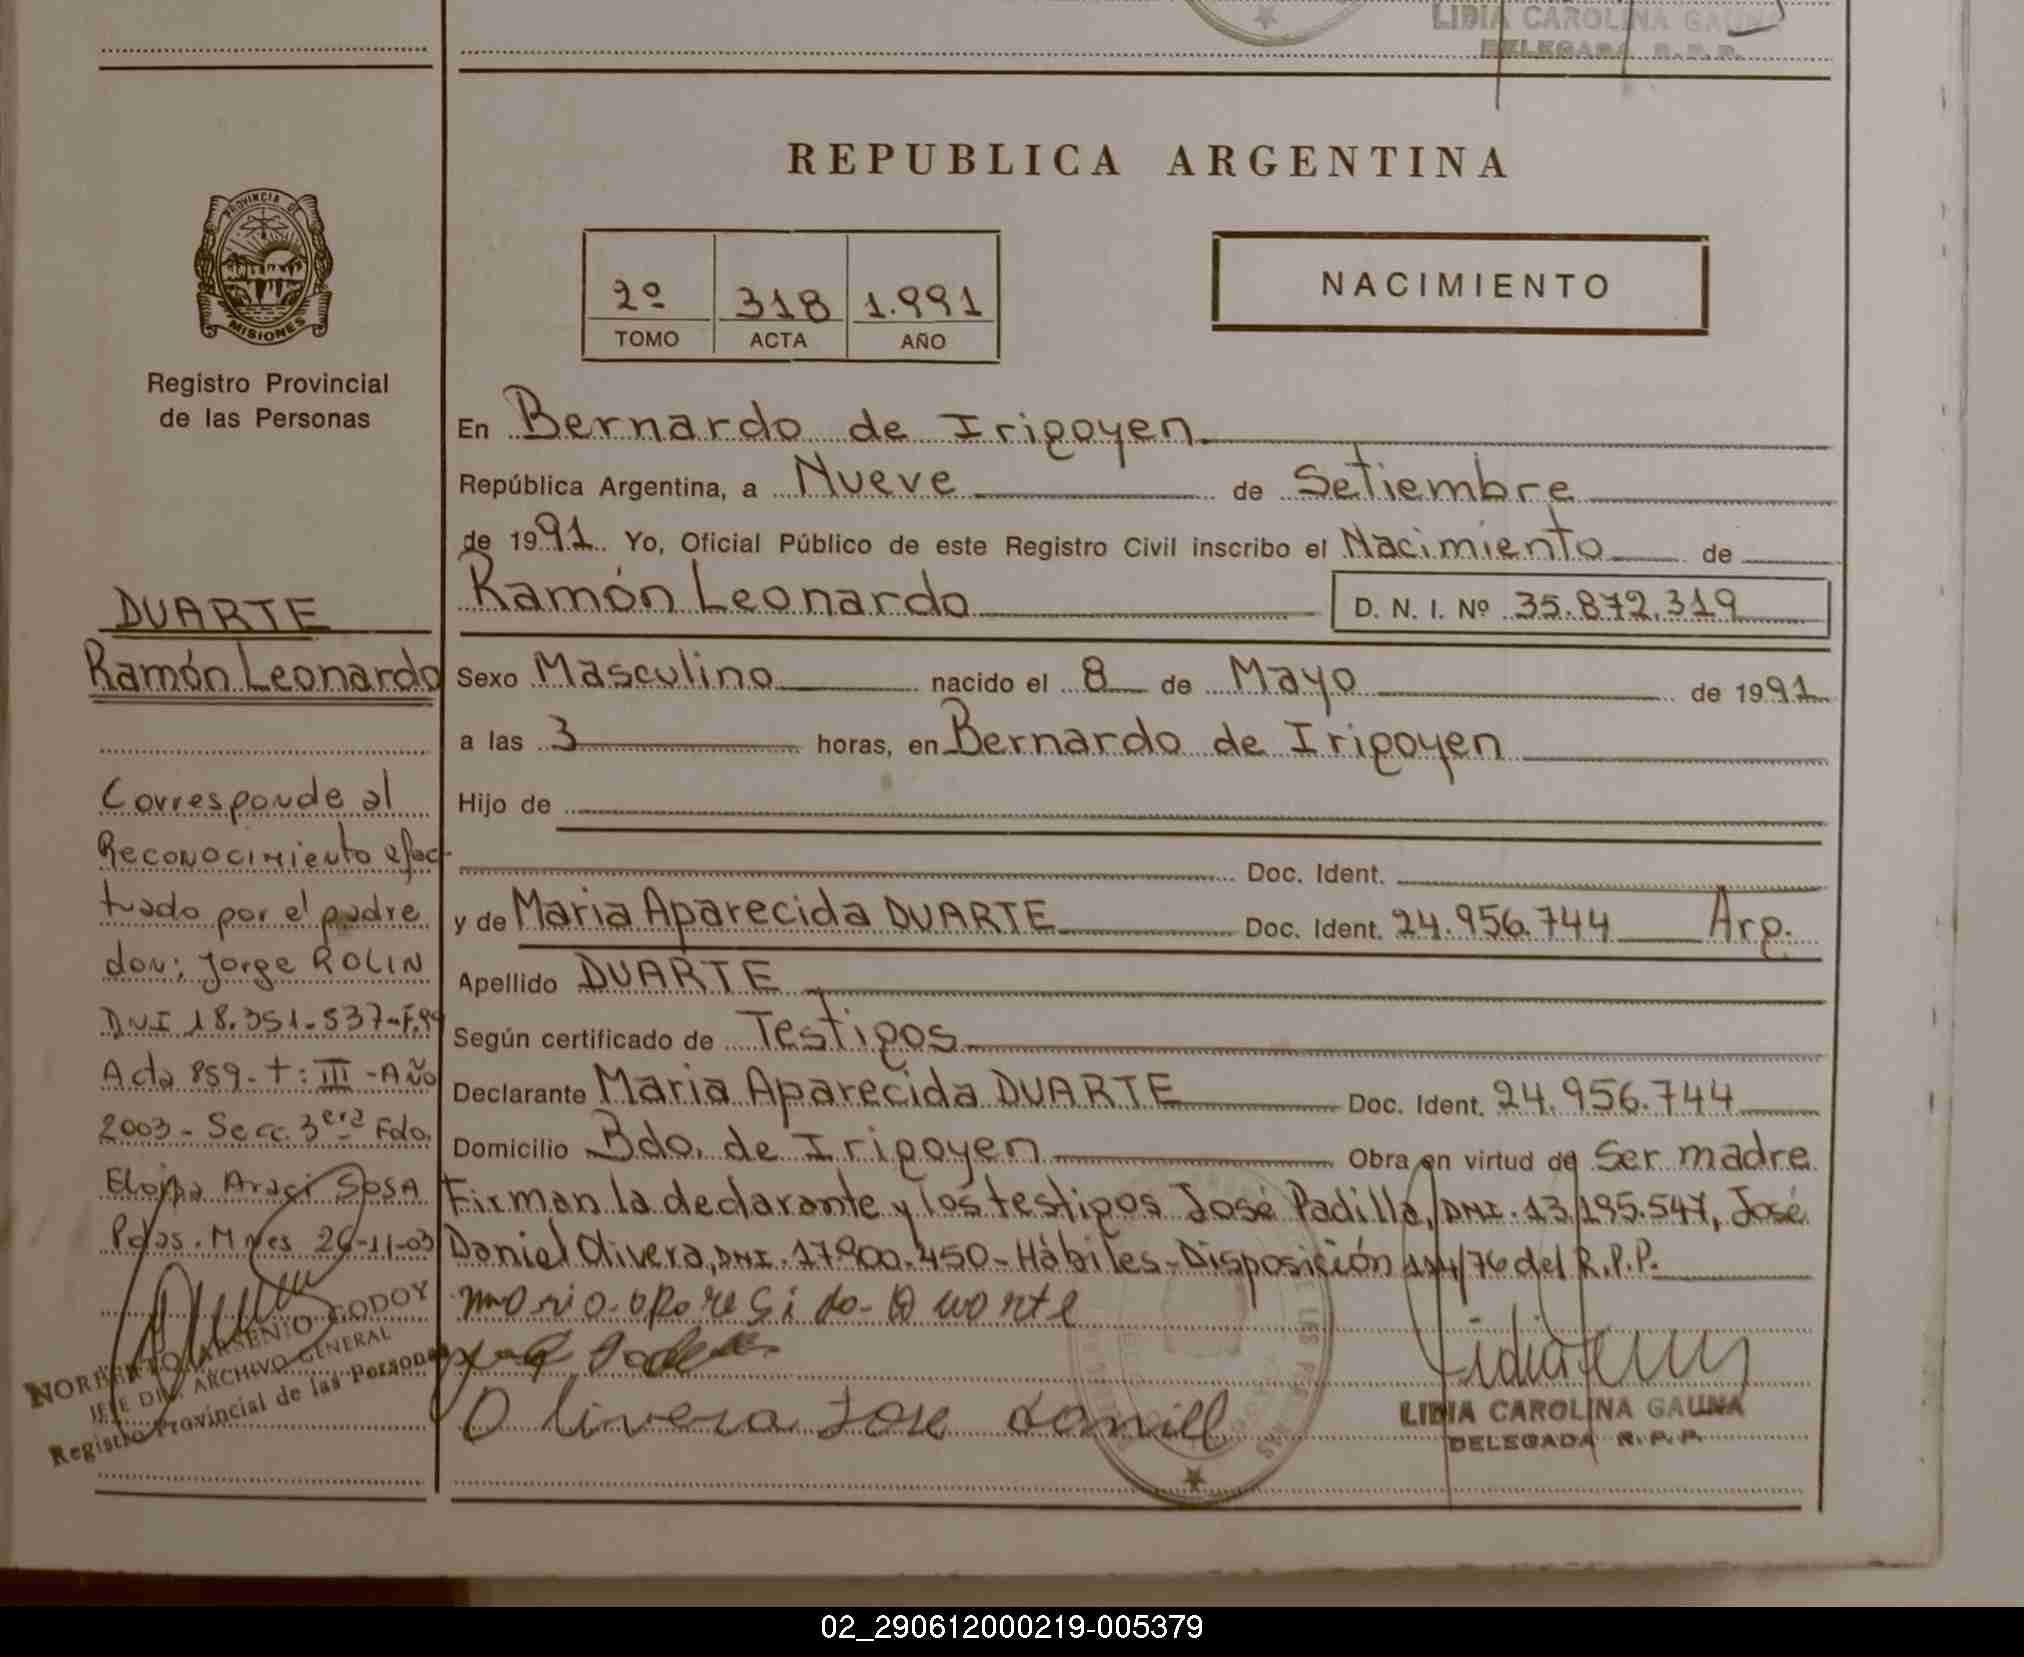 LIDIA CAROLINA GAUNA
DELEGADA R.P.P.
REPUBLICA ARGENTINA
PROVINCIA DE
MISIONES
Registro Provincial
de las Personas
2º 318 1.991
TOMO ACTA AÑO
NACIMIENTO
En Bernardo de Irigoyen
República Argentina, a Nueve de Setiembre
de 1991. Yo, Oficial Público de este Registro Civil inscribo el Nacimiento de
Ramón Leonardo D. N. I. Nº 35.872.319
Sexo Masculino nacido el 8 de Mayo de 1991
a las 3 horas, en Bernardo de Irigoyen
Hijo de
Doc. Ident.
y de Maria Aparecida DUARTE Doc. Ident. 24.956.744 Arg.
Apellido DUARTE
Según certificado de Testigos
Declarante Maria Aparecida DUARTE Doc. Ident. 24.956.744
Domicilio Bdo. de Irigoyen Obra en virtud de Ser madre
Firman la declarante y los testigos José Padilla, DNI. 13.195.547, José
Daniel Olivera, DNI. 17.900.450 - Hábiles - Disposición 114/76 del R.P.P.
maria aparesida Duarte
Olivera Jose daniell
LIDIA CAROLINA GAUNA
DELEGADA R.P.P.
DUARTE
Ramón Leonardo
Corresponde al
Reconocimiento efec-
tuado por el padre
don: Jorge ROLIN
DNI 18.351.537-F.99
Acta 859-t: III - Año
2003 - Secc. 3era Fdo.
Eloisa Araci SOSA
Pdas. Mnes 26-11-03
NORBERTO ARSENIO GODOY
JEFE DPT. ARCHIVO GENERAL
Registro Provincial de las Personas
02_290612000219-005379